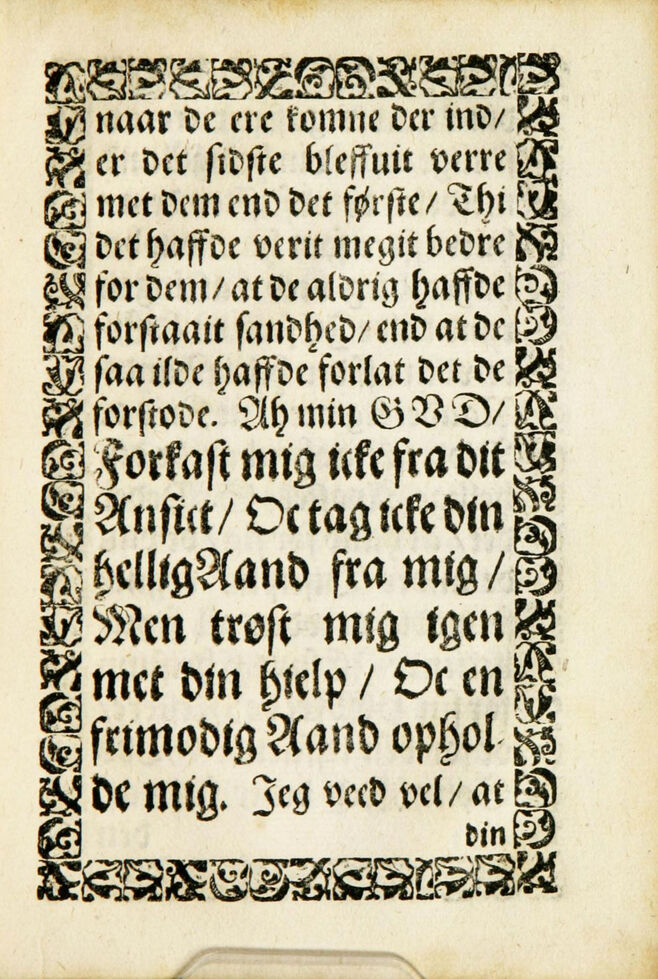 naar de ere komne der ind/
er det sidste bleffuit verre
met dem end det første/ Thi
det haffde verit megit bedre
for dem/ at de aldrig haffde
forstaait sandhed/ end at de
saa ilde haffde forlat det de
forstode. Ah min GVD/
Forkast mig icke fra dit
Ansict/ Oc tag icke din
hellig Aand fra mig/
Men trøst mig igen
met din hielp/ Oc en
frimodig Aand ophol-
de mig. Jeg veed vel/ at
din